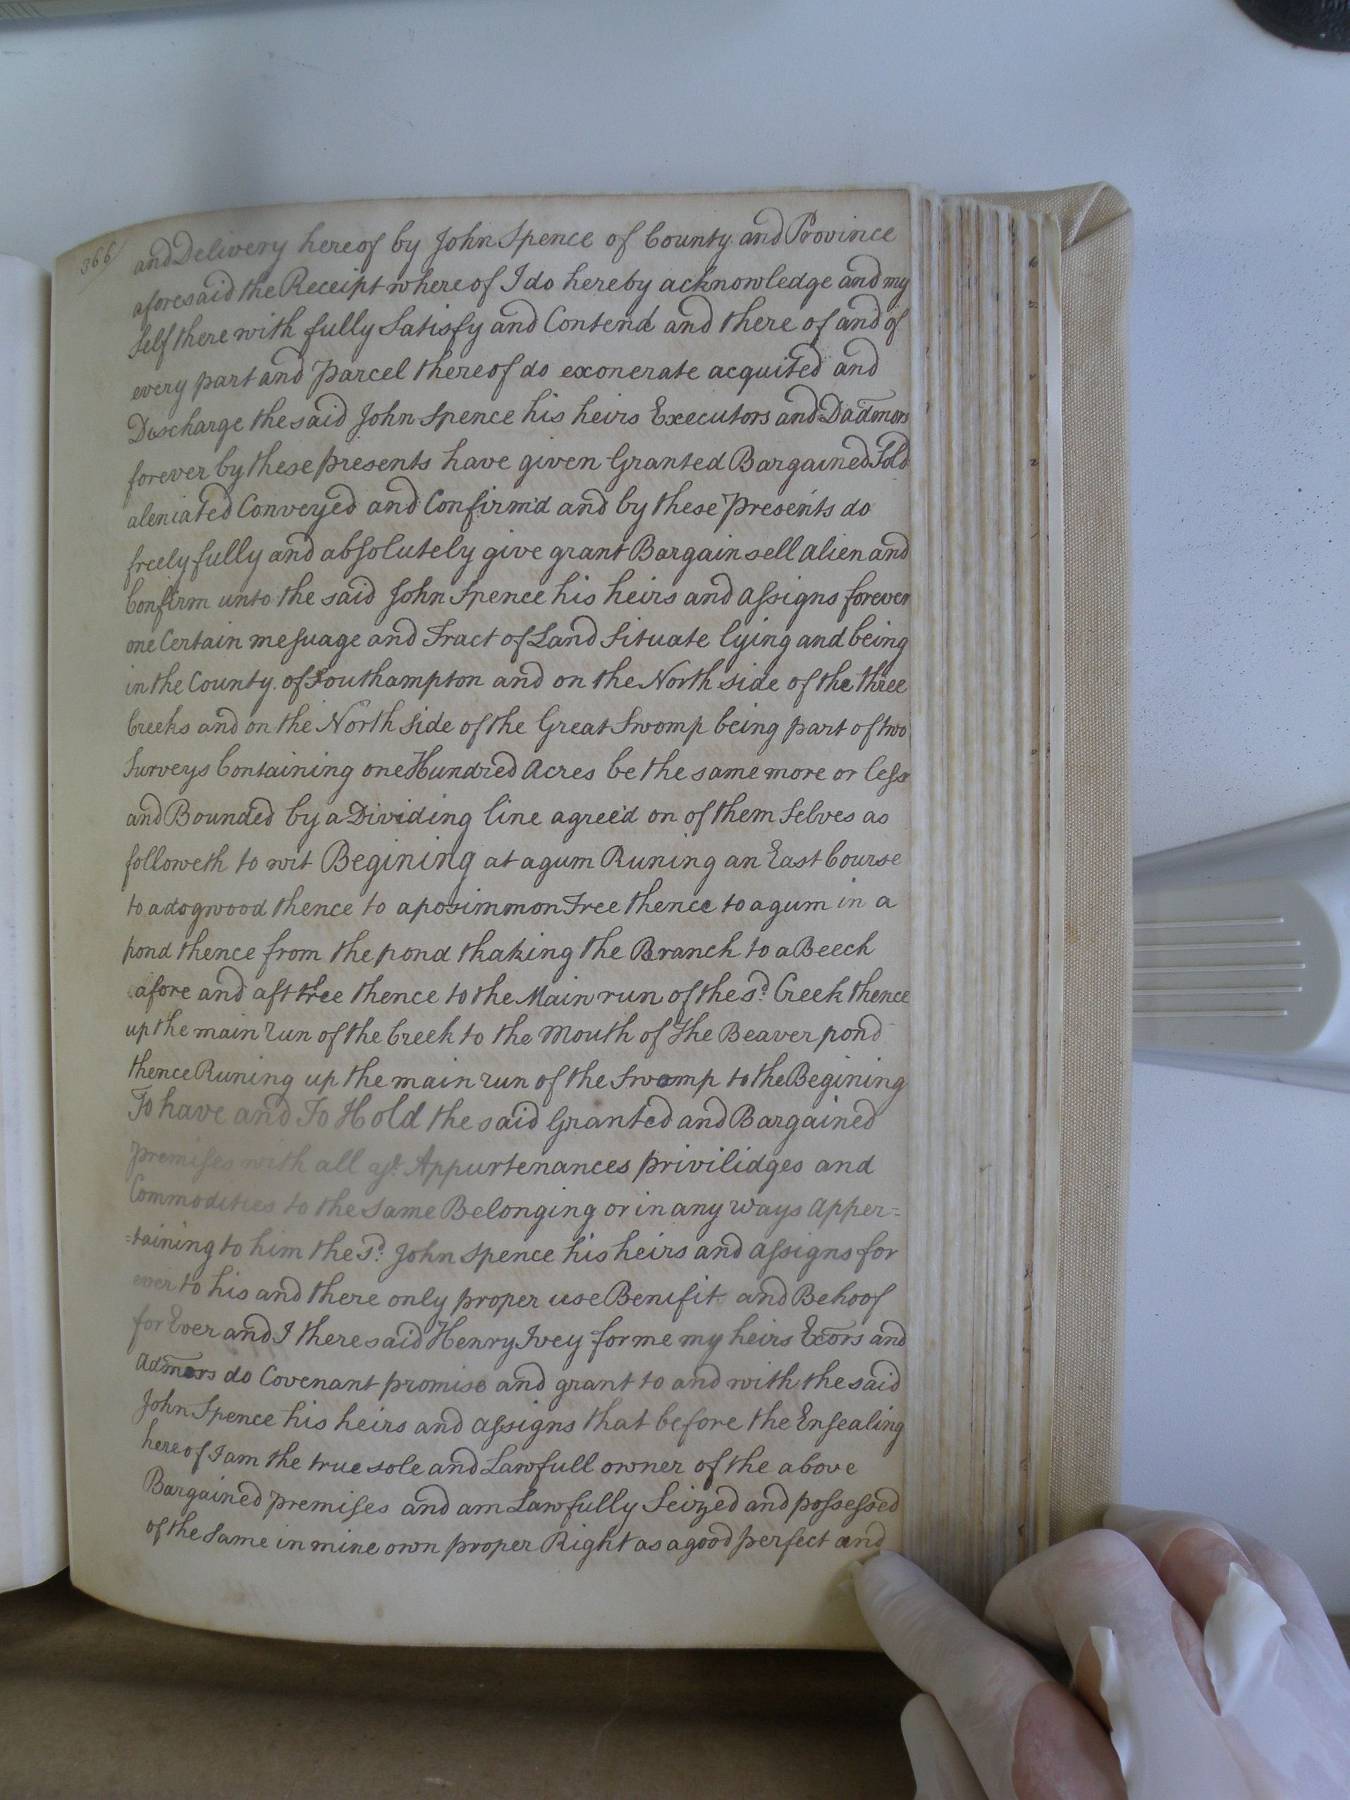 366
and Delivery hereof by John Spence of County and Province
aforesaid the Receipt whereof I do hereby acknowledge and my
self there with fully Satisfy and Contend and there of and of
every part and Parcel thereof do exonerate acquited and
Dascharge the said John Spence his heirs Executors and Dadmors
forever by these presents have given Granted Bargained Sold
aleniated Conveyed and Confirm'd and by these Presents do
freely fully and absolutely give grant Bargain sell Alien and
Confirm unto the said John Spence his heirs and Assigns forever
one Certain mesuage and Tract of Land Situate lying and being
in the County of Southampton and on the North side of the three
Creeks and on the North side of the Great Swomp being part of two
Surveys Containing one Hundred Acres be the same more or less
and Bounded by a Dividing line agree'd on of them Selves as
followeth to wit Begining at a gum Runing an East Course
to a dogwood thence to a posimmon Tree thence to a gum in a
pond thence from the pond thaking the Branch to a Beech
afore and aft tree thence to the Main run of the sd. Creek thence
up the main run of the Creek to the Mouth of the Beaver pond
thence Runing up the main run of the Swomp to the Begining
To have and To Hold the said Granted and Bargained
Premises with all Appurtenances privilidges and
Commodities to the Same Belonging or in any ways Apper=
=taining to him the sd. John Spence his heirs and Assigns for
ever to his and there only proper use Benifit and Behoof
for Ever and I there said Henry Ivey for me my heirs Exors and
Admors do Covenant promise and grant to and with the said
John Spence his heirs and Assigns that before the Ensealing
hereof I am the true sole and Lawfull owner of the above
Bargained premises and am Lawfully Seized and possessed
of the Same in mine own proper Right as a good perfect and